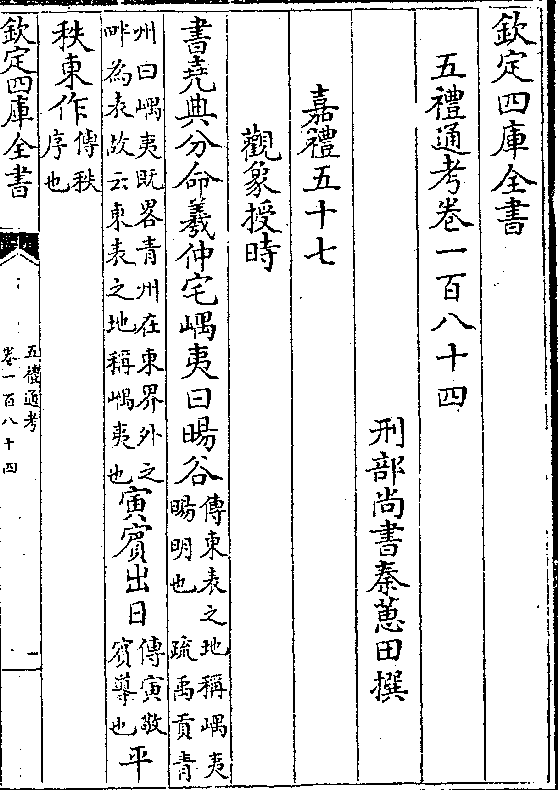 欽定四庫全書
五禮通考卷一百八十四
刑部尚書秦蕙田撰
嘉禮五十七
觀象授時
書堯典分命羲仲宅嵎夷曰暘谷傳東表之地稱嵎夷暘明也 疏禹貢青
州曰嵎夷既畧青州在東界外之畔為表故云東表之地稱嵎夷也寅賓出日傳寅敬賓導也平
秩東作傳秩序也
欽定四庫全書
五禮通考
卷一百八十四
一